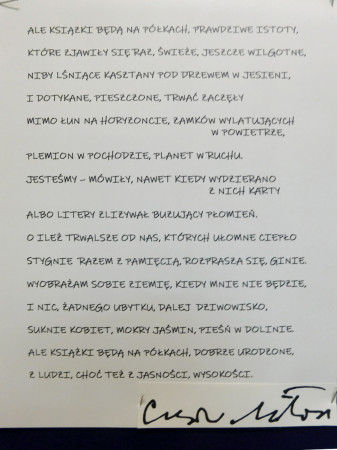 ALE KSIĄŻKI BĘDĄ NA PÓŁKACH, PRAWDZIWE ISTOTY,
KTÓRE ZJAWIŁY SIĘ RAZ, ŚWIEŻE, JESZCZE WILGOTNE,
NIBY LŚNIĄCE KASZTANY POD DRZEWEM W JESIENI,
I DOTYKANE, PIESZCZONE, TRWAĆ ZACZĘŁY
MIMO ŁUN NA HORYZONCIE, ZAMKÓW WYLATUJĄCYCH
W POWIETRZE,
PLEMION W POCHODZIE, PLANET W RUCHU.
JESTEŚMY – MÓWIŁY, NAWET KIEDY WYDZIERANO
Z NICH KARTY
ALBO LITERY ZLIZYWAŁ BUZUJĄCY PŁOMIEŃ.
O ILEŻ TRWALSZE OD NAS, KTÓRYCH UŁOMNE CIEPŁO
STYGNIE RAZEM Z PAMIĘCIĄ, ROZPRASZA SIĘ, GINIE.
WYOBRAŻAM SOBIE ZIEMIĘ, KIEDY MNIE NIE BĘDZIE,
I NIC, ŻADNEGO UBYTKU, DALEJ DZIWOWISKO,
SUKNIE KOBIET, MOKRY JAŚMIN, PIEŚŃ W DOLINIE.
ALE KSIĄŻKI BĘDĄ NA PÓŁKACH, DOBRZE URODZONE,
Z LUDZI, CHOĆ TEŻ Z JASNOŚCI, WYSOKOŚCI.
Czesław Miłosz